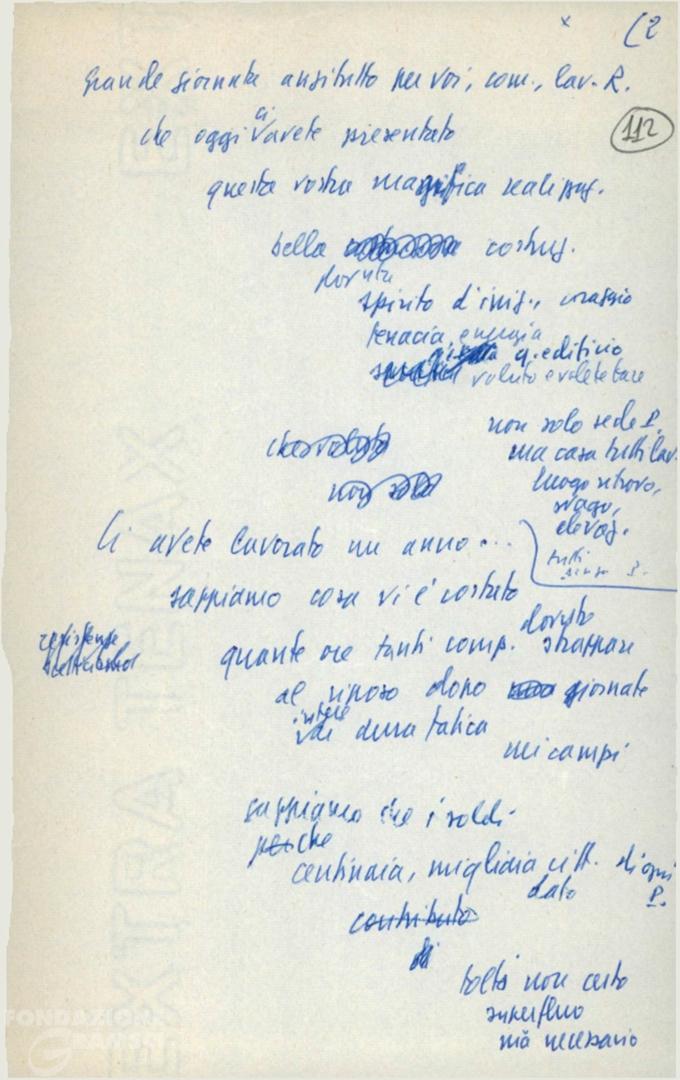 (2
grande giornata anzitutto per voi, com., lav. R.
112
che oggi ci avete presentato
questa vostra magnifica realizzaz.
bella costruz.
dovuta
spirito d'iniz., coraggio
tenacia, energia
q. edificio
voluto e volete fare
non solo sede P.
ma casa tutti lav.
luogo ritrovo,
svago,
elevaz.
tutti
senza P.
che voluto
non solo
Ci avete lavorato un anno...
sappiamo cosa vi è costato
dovuto
quante ore tanti comp. strappare
al riposo dopo giornate
intere
di dura fatica
nei campi
sappiamo che i soldi
perche
centinaia, migliaia citt. di ogni
dato P.
contributo
di
tolti non certo
superfluo
ma necessario
FONDAZIONE
GRAMSCI
EXTRA TENAX